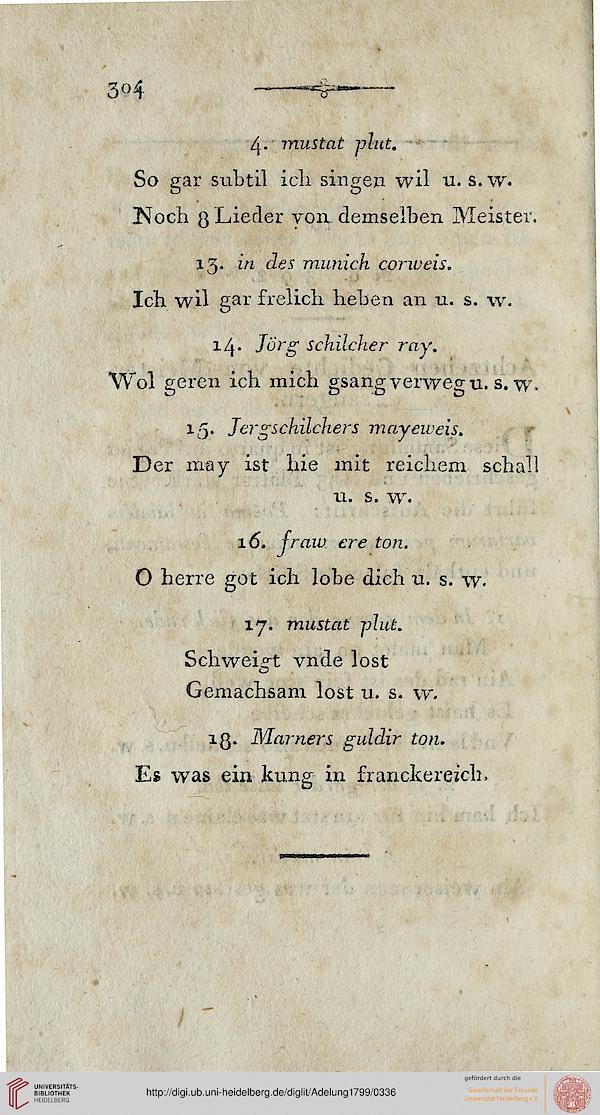 304
4. mustat plut.
So gar subtil ich singen wil u. s. w.
Noch 8 Lieder von demselben Meister.
13. in des munich corweis.
Ich wil gar frelich heben an u. s. w.
14. Jörg schilcher ray.
Wol geren ich mich gsang verweg u. s. w.
15. Jergschilchers mayeweis.
Der may ist hie mit reichem schall
u. s. w.
16. fraw ere ton.
O herre got ich lobe dich u. s. w.
17. mustat plut.
Schweigt vnde lost
Gemachsam lost u. s. w.
18. Marners guldir ton.
Es was ein kung in franckereich.
UNIVERSITÄTS-
BIBLIOTHEK
HEIDELBERG
http://digi.ub.uni-heidelberg.de/diglit/Adelung1799/0336
gefördert durch die
Gesellschaft der Freunde
Universität Heidelberg e.V.